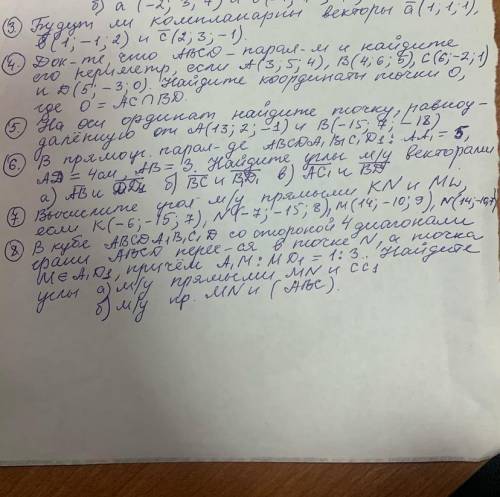 б) a (-2; 3; 7) и
③ Будут ли компланарны векторы a(1; 1; 1),
b(1; -1; 2) и c(2; 3; -1).
④ Док-те, что ABCD - парал-м и найдите
его периметр, если A(3; 5; 4), B(4; 6; 5), C(6; -2; 1)
и D(5; -3; 0). Найдите координаты точки O,
где O = AC∩BD.
⑤ На оси ординат найдите точку, равноу-
далённую от A(13; 2; -1) и B(-15; 7; -18)
⑥ В прямоуг. парал-де ABCDA₁B₁C₁D₁: AA₁ = 5,
AD = 4см, AB = 3. Найдите углы м/у векторами
а) AB и DD₁ б) BC и BD₁ в) AC₁ и BD
⑦ Вычислите угол м/у прямыми KN и MN,
если K(-6; -15; 7), N(-7; -15; 8), M(14; -10; 9),
⑧ В кубе ABCDA₁B₁C₁D со стороной 4 диагонали
грани ABCD перес-ся в точке N, а точка
M∈A₁D₁, причём A₁M:MD₁ = 1:3. Найдите
углы а) м/у прямыми MN и CC₁
б) м/у пр. MN и (ABC).